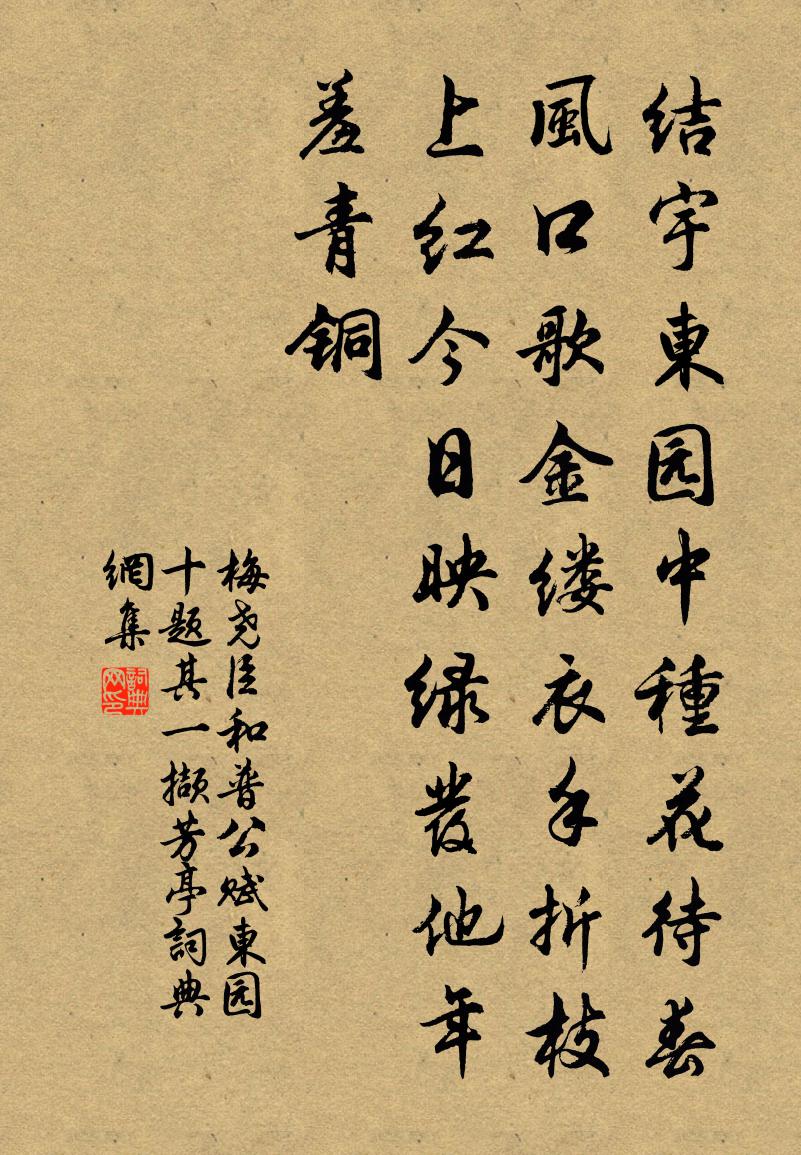 结宇東园中種花待春
風口歌金缕衣手折枝
上红今日映绿發他年
羞青铜
梅尧臣和普公赋東园
十题其一擷芳亭詞典
網集
詞典网印